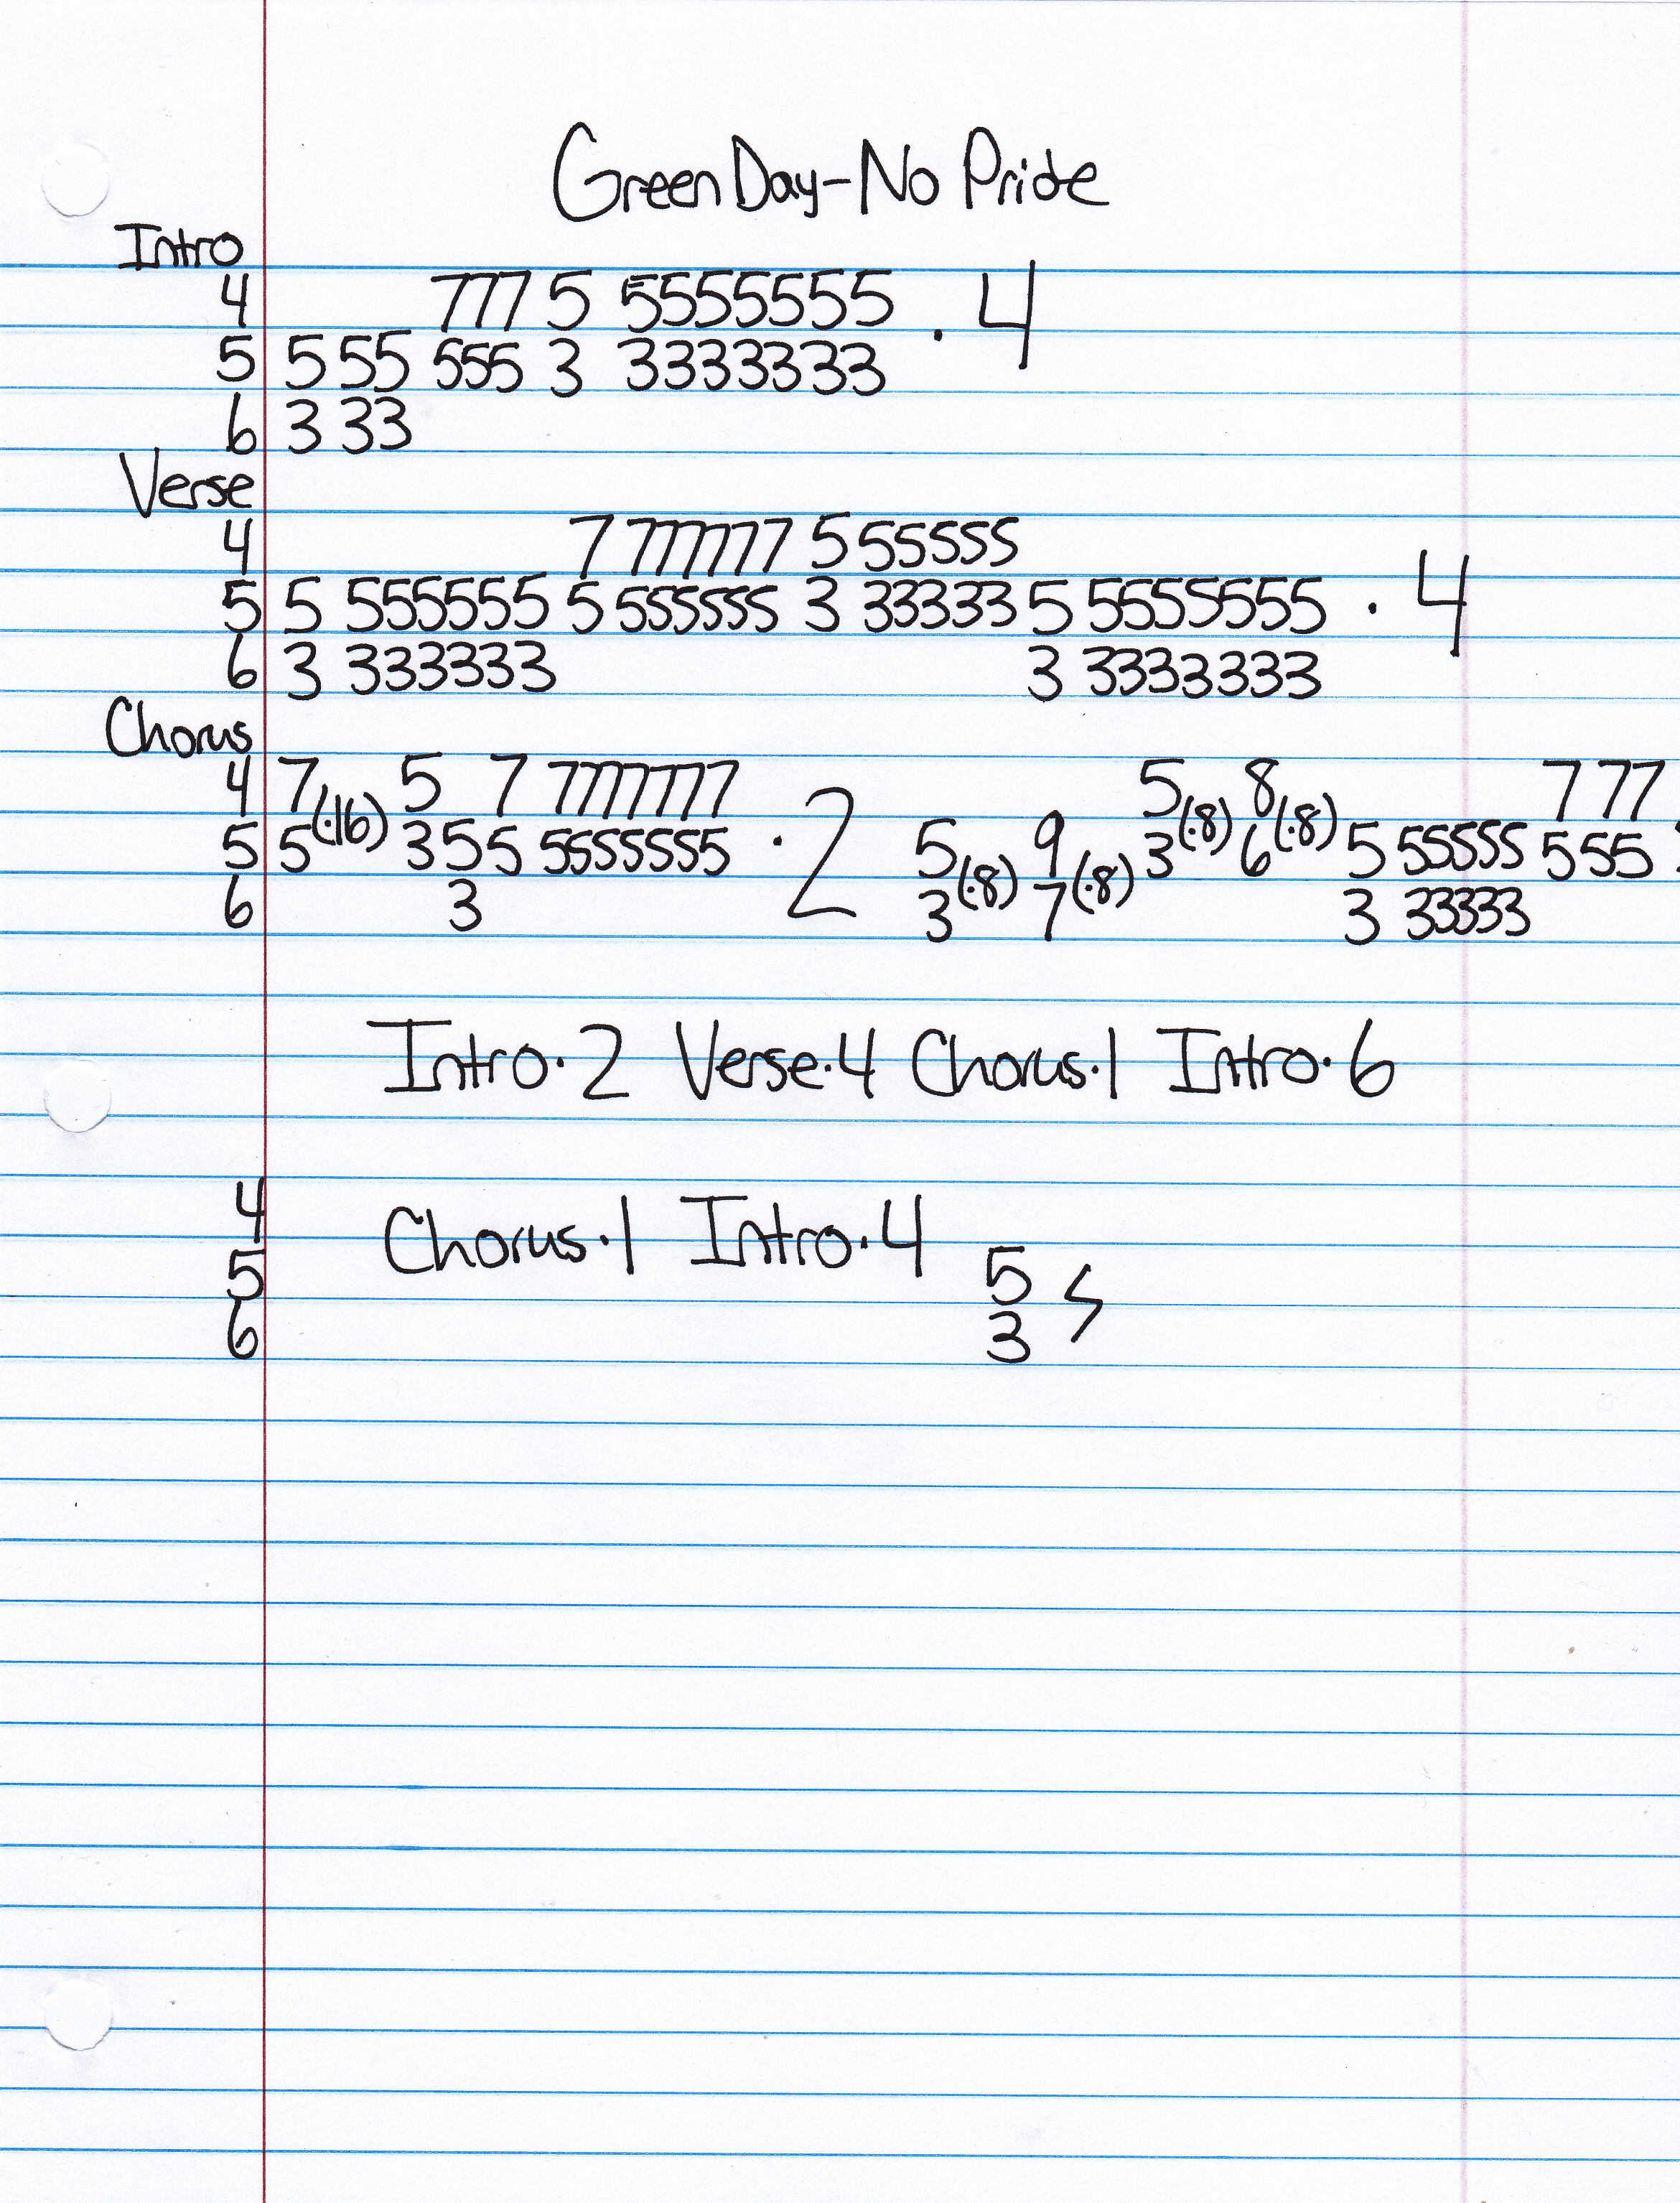 Green Day-No Pride
Intro
4 777 5 5555555 · 4
5 5 55 555 3 3333333
6 3 33
Verse
4 7 777777 5 55555
5 5 555555 5 555555 3 33333 5 5555555 · 4
6 3 333333 3 3333333
Chorus
4 7(·16) 5 7 7777777 · 2 5(·8) 8(·8) 7 77
5 5 3 5 5 5555555 5(·8) 9(·8) 3 6 5 55555 5 55
6 3 3 7 3 33333
Intro·2 Verse·4 Chorus·1 Intro·6
4 Chorus·1 Intro·4
5 5
6 3